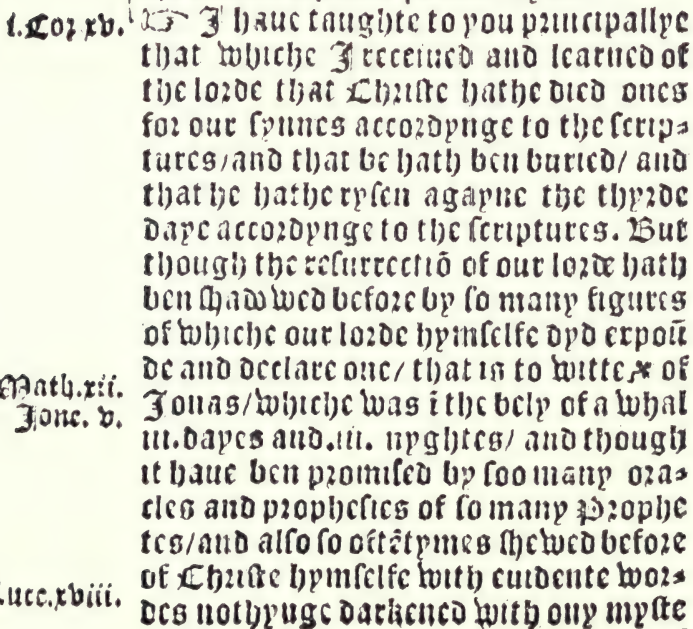 i.Cor. xv. ☞ I haue taughte to you principallye
that whiche I receiued and learned of
the lorde that Christe hathe died ones
for our synnes accordynge to the scrip=
tures/and that he hath ben buried/ and
that he hathe rysen agayne the thyrde
daye accordynge to the scriptures. But
though the resurrectiō of our lorde hath
ben shadowed before by so many figures
of whiche our lorde hymselfe dyd expoū
Math.xii. de and declare one/ that is to witte, of
Jone. v. Jonas/whiche was ī the bely of a whal
iii.dayes and.iii. nyghtes/ and though
it haue ben promised by soo many ora=
cles and prophesies of so many Prophe
tes/and also so oftētymes shewed before
Luce.xviii. of Christe hymselfe with euidente wor=
des nothynge darkened with ony myste